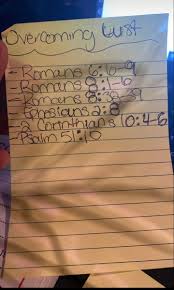 Overcoming Lust
- Romans 6:6-9
- Romans 8:1-6
- Romans 8:38-39
- Ephesians 2:8
- 2 Corinthians 10:4-6
- Psalm 51:10